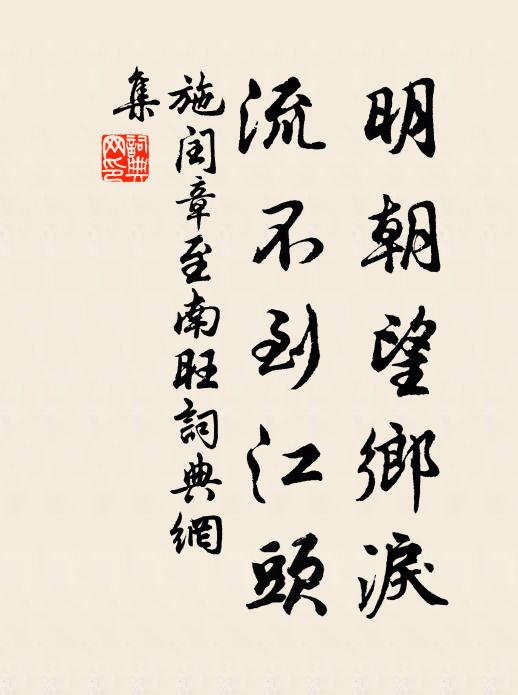 明朝望鄉淚
流不到江頭
施閏章至南旺詞典網
集
詞典
网印